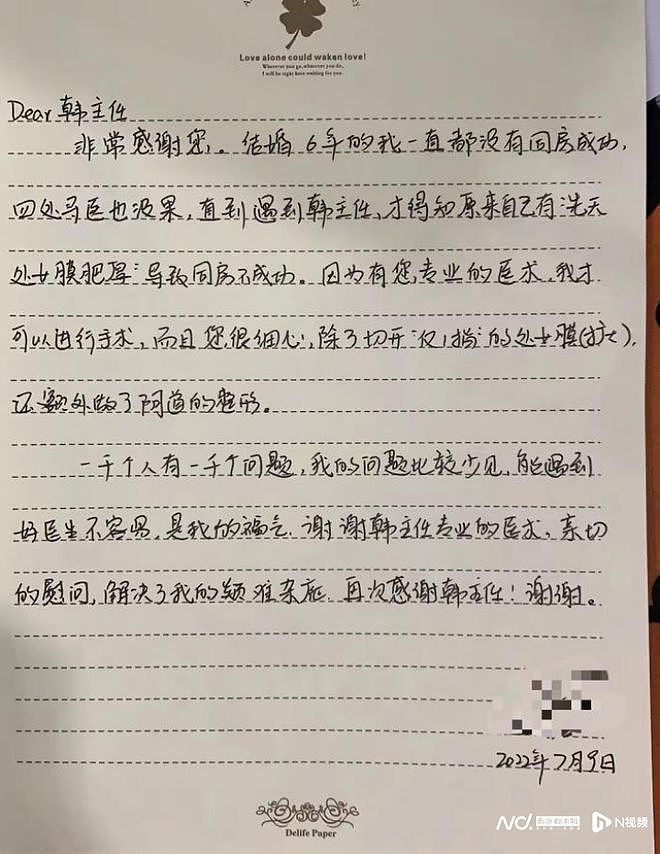 Love alone could waken love!
Wherever you go, whatever you do,
I will be right here waiting for you.
Dear 韩主任
非常感谢您。结婚6年的我一直都没有同房成功,
四处寻医也没果,直到遇到韩主任,才得知原来自己有先天
处女膜肥厚导致同房不成功。因为有您专业的医术,我才
可以进行手术,而且您很细心,除了切开"仅1指"的处女膜(扩大),
还额外做了阴道的整形。
一千个人有一千个问题,我的问题比较少见,能遇到
好医生不容易,是我的福气.谢谢韩主任专业的医术,亲切
的慰问,解决了我的疑难杂症.再次感谢韩主任!谢谢。
2022年7月9日
Delife Paper
南方都市报
N视频